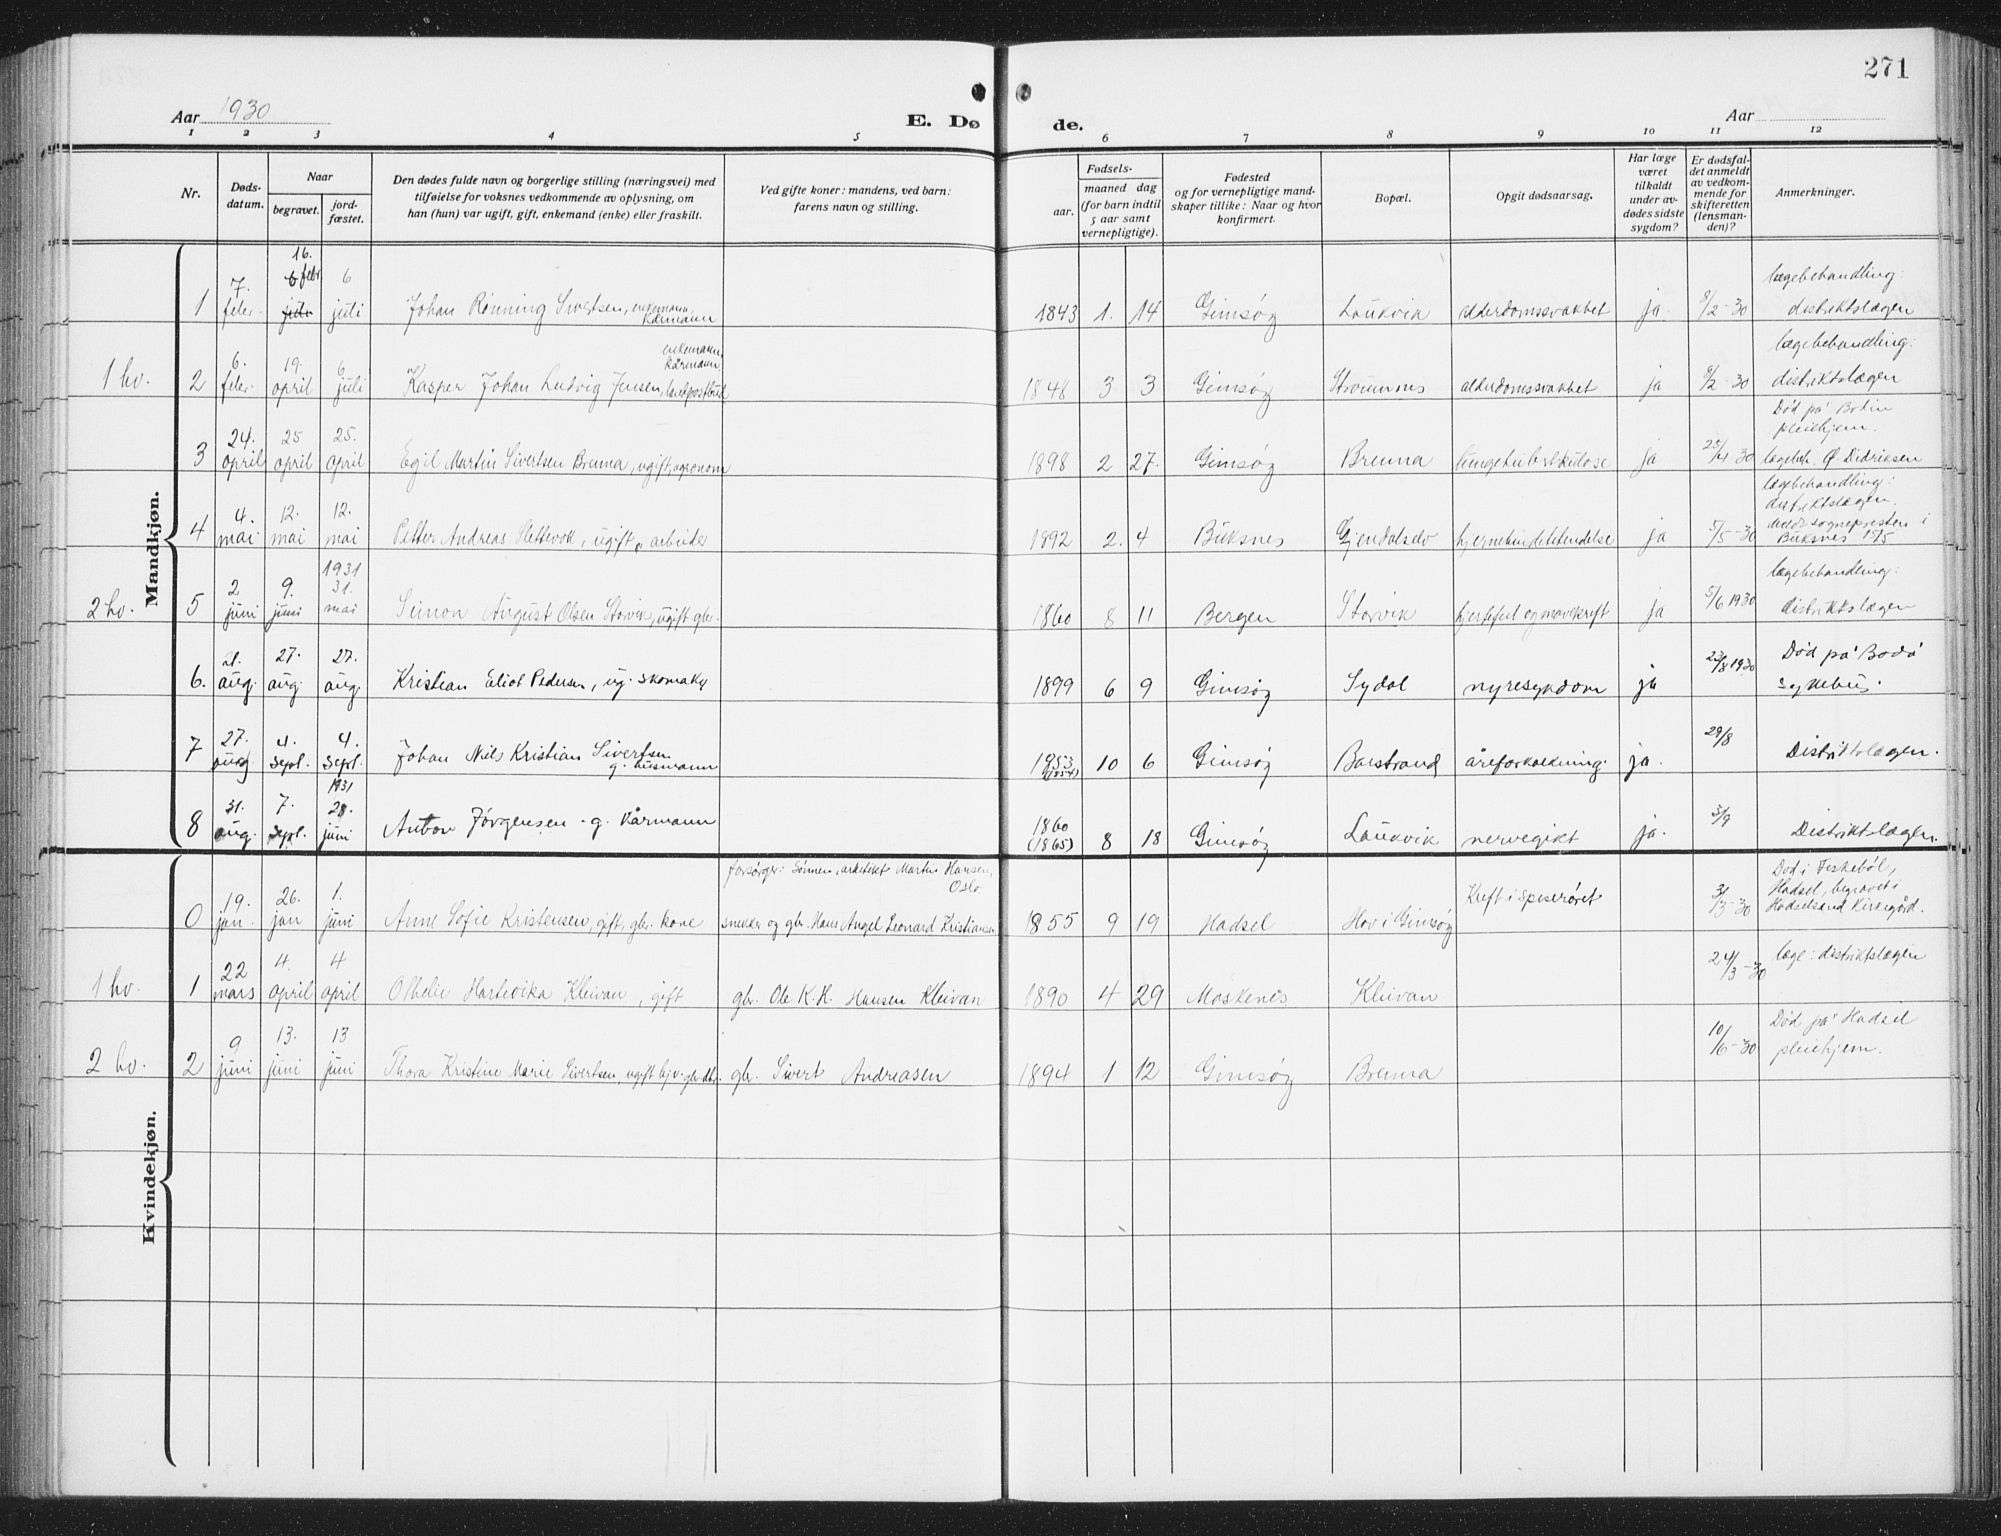 271
Aar 1930
E. Dø de.
Aar
1 2 3 4 5 6 7 8 9 10 11 12
Nr.
Døds-
datum.
Naar
begravet.
jord-
fæstet.
Den dødes fulde navn og borgerlige stilling (næringsvei) med
tilføielse for voksnes vedkommende av oplysning, om
han (hun) var ugift, gift, enkemand (enke) eller fraskilt.
Ved gifte koner: mandens, ved barn:
farens navn og stilling.
Fødsels-
aar.
maaned dag
(for barn indtil
5 aar samt
vernepligtige).
Fødested
og for vernepligtige mand-
skaper tillike: Naar og hvor
konfirmert.
Bopæl.
Opgit dødsaarsag.
Har læge
været
tilkaldt
under av-
dødes sidste
sygdom?
Er dødsfal-
det anmeldt
av vedkom-
mende for
skifteretten
(lensman-
den)?
Anmerkninger.
Mandkjøn.
1 7. febr. 16. febr 6 juli Johan Rønning Sivertsen, enkemann, kårmann 1843 1. 14 Gimsøy Laukvik alderdomssvakhet ja. 8/2-30 lægebehandling: distriktslægen
1 hv. 2 6. febr. 19. april 6. juli Kasper Johan Ludvig Jensen, enkemann, kårmann, landpostbud 1848 3 3 Gimsøy Straumnes alderdomssvakhet ja 8/2-30 lægebehandling: distriktslægen
3 24. april 25 april 25. april Egil Martin Sivertsen Brenna, ugift, agronom 1898 2 27. Gimsøy Brenna lungetuberkulose ja 25/4 30 Død på Bodin pleiehjem. lægebeh. Ø. Didriksen
4 4. mai 12. mai 12. mai Petter Andreas Slettevok, ugift, arbeider 1892 2. 4 Buksnes Gjendalselv hjernehindebetendelse ja 5/5-30 lægebehandling: distriktslægen. Meldt sognepresten i Buksnes 15/5
2 hv. 5 2 juni 9. juni 1931 31. mai Simon August Olsen Storvik, ugift gbr. 1860 8 11 Bergen Storvik hjertefeil og mavekreft ja 5/6 1930 lægebehandling: distriktslægen
6. 21. aug. 27. aug. 27. aug. Kristian Eliot Pedersen, ug. skomaker 1899 6 9 Gimsøy Sydal nyresykdom ja 23/8 1930 Død på Bodø sykehus.
7 27. aug 4. sept. 4. sept. Johan Nils Kristian Sivertsen g. husmann 1853 (1854) 10 6 Gimsøy Barstrand åreforkalkning. ja. 29/8 Distriktslægen.
8 31. aug. 7. sept. 1931 28. juni Anton Jørgensen - g. kårmann 1860 (1865) 8 18 Gimsøy Laukvik nervegikt ja. 3/9 Distriktslægen.
Kvindekjøn.
0 19. jan. 26. jan 1. juni Anne Sofie Kristensen, gift, gbr. kone forsørger: Sønnen, arkitekt Martin Hansen, Oslo snekker og gbr. Hans Angel Leonard Kristiansen 1855 9 19 Hadsel Hov i Gimsøy Kreft i spiserøret 3/3-30 Død i Fiskebøl, Hadsel, begravet i Hadselsand Kirkegård.
1 hv. 1 22 mars 4. april 4 april Othelie Hartevika Kleivan, gift gbr. Ole K. H. Hansen Kleivan 1890 4 29 Moskenes Kleivan 24/3-30 læge: distriktslægen
2 hv. 2 9 juni 13. juni 13 juni Thora Kristine Marie Sivertsen, ugift hjv. gbr.dtr. gbr. Sivert Andreasen 1894 1 12 Gimsøy Brenna 10/6-30 Død på Hadsel pleiehjem.